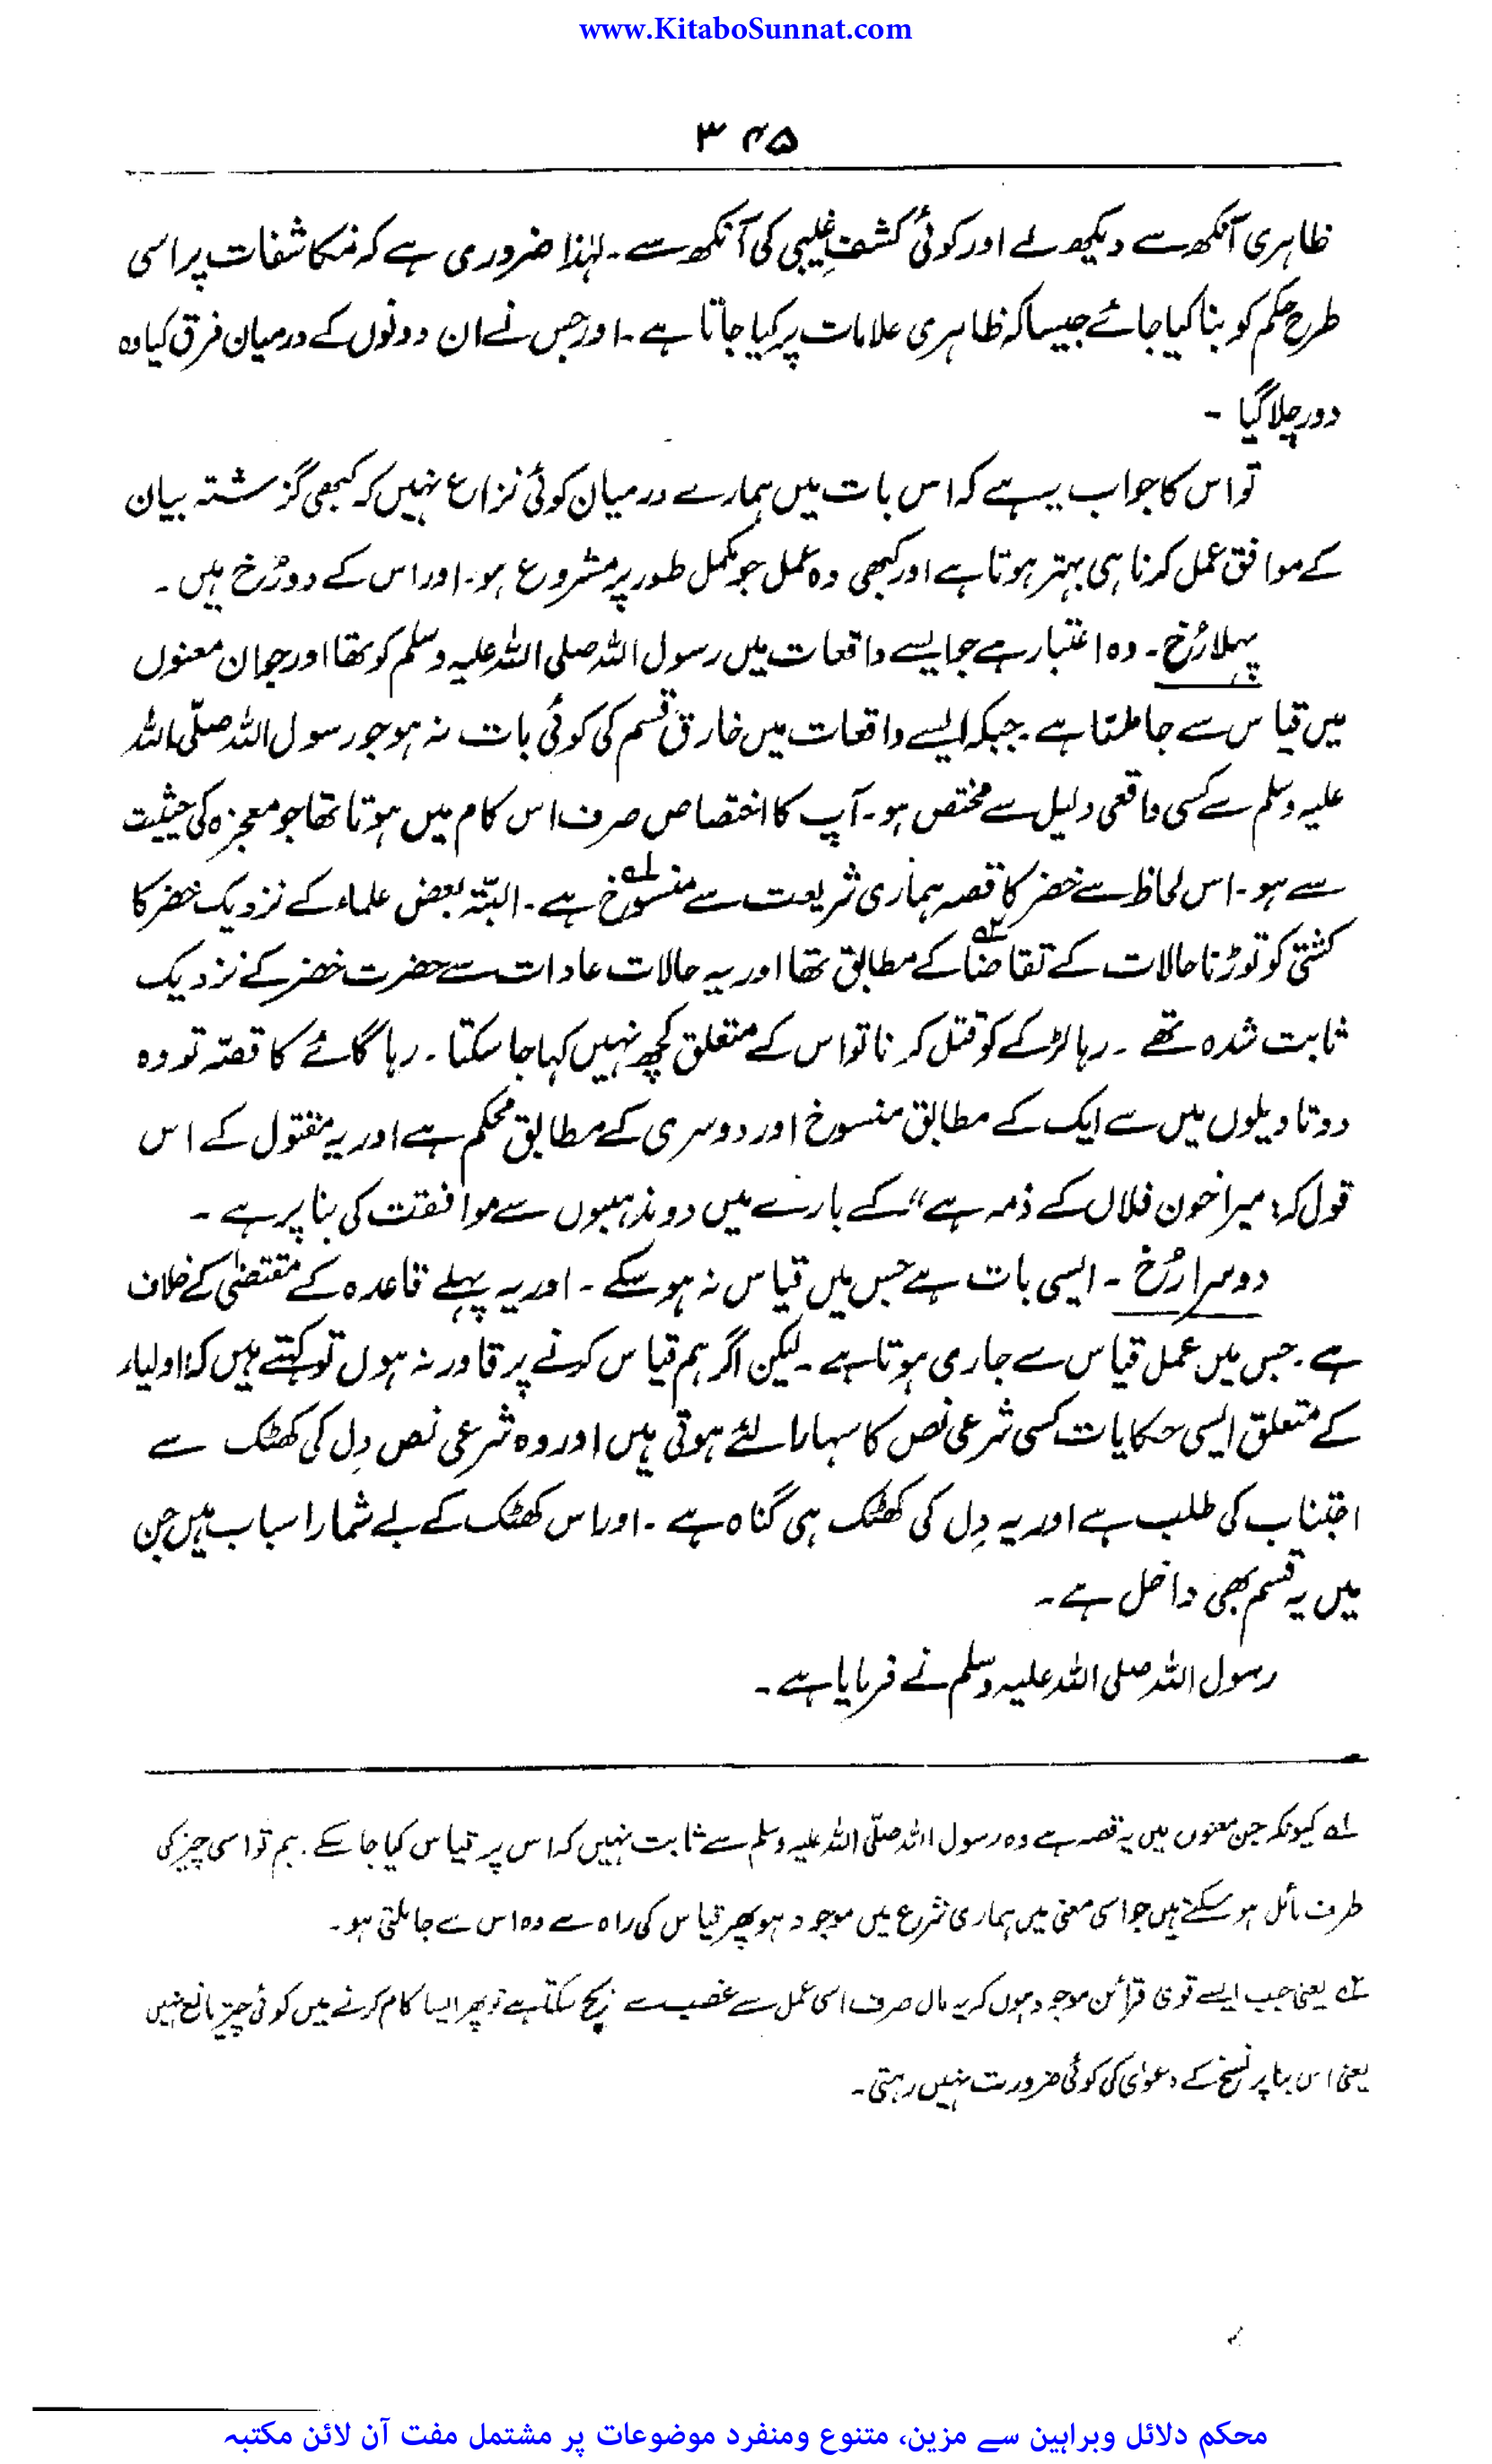 www.KitaboSunnat.com
۳۴۵
ظاہری آنکھ سے دیکھ لے اور کوئی کشفِ غیبی کی آنکھ سے ۔ لہٰذا ضروری ہے کہ مکاشفات پر اسی
طرح حکم کو بنا کیا جائے جیسا کہ ظاہری علامات پر کیا جاتا ہے ۔ اور جس نے ان دونوں کے درمیان فرق کیا وہ
دور چلا گیا ۔
تو اس کا جواب یہ ہے کہ اس بات میں ہمارے درمیان کوئی نزاع نہیں کہ کبھی گزشتہ بیان
کے موافق عمل کرنا ہی بہتر ہوتا ہے اور کبھی وہ عمل جو مکمل طور پر مشروع ہو ۔ اور اس کے دو رُخ ہیں ۔
پہلا رُخ ۔ وہ اعتبار ہے جو ایسے واقعات میں رسول اللہ صلی اللہ علیہ وسلم کو تھا اور جو ان معنوں
میں قیاس سے جا ملتا ہے ۔ جبکہ ایسے واقعات میں خارق قسم کی کوئی بات نہ ہو جو رسول اللہ صلّی اللہ
علیہ وسلم سے کسی واقعی دلیل سے مختص ہو ۔ آپ کا اختصاص صرف اس کام میں ہوتا تھا جو معجزہ کی حیثیت
سے ہو ۔ اس لحاظ سے خضر کا قصہ ہماری شریعت سے منسوخ ہے ۔ البتّہ بعض علماء کے نزدیک خضر کا
کشتی کو توڑنا حالات کے تقاضا کے مطابق تھا اور یہ حالات عادات سے حضرت خضر کے نزدیک
ثابت شدہ تھے ۔ رہا لڑکے کو قتل کرنا تو اس کے متعلق کچھ نہیں کہا جا سکتا ۔ رہا گائے کا قصّہ تو وہ
دو تاویلوں میں سے ایک کے مطابق منسوخ اور دوسری کے مطابق محکم ہے اور یہ مقتول کے اس
قول کہ: میرا خون فلاں کے ذمہ ہے“ کے بارے میں دو مذہبوں سے موافقت کی بنا پر ہے ۔
دوسرا رُخ ۔ ایسی بات ہے جس میں قیاس نہ ہو سکے ۔ اور یہ پہلے قاعدہ کے مقتضیٰ کے خلاف
ہے ۔ جس میں عمل قیاس سے جاری ہوتا ہے ۔ لیکن اگر ہم قیاس کرنے پر قادر نہ ہوں تو کہتے ہیں کہ: اولیاء
کے متعلق ایسی حکایات کسی شرعی نص کا سہارا لئے ہوتی ہیں اور وہ شرعی نص دِل کی کھٹک سے
اجتناب کی طلب ہے اور یہ دِل کی کھٹک ہی گناہ ہے ۔ اور اس کھٹک کے بے شمار اسباب ہیں جن
میں یہ قسم بھی داخل ہے ۔
رسول اللہ صلی اللہ علیہ وسلم نے فرمایا ہے ۔
۱؎ کیونکہ جن معنوں میں یہ قصہ ہے وہ رسول اللہ صلّی اللہ علیہ وسلم سے ثابت نہیں کہ اس پر قیاس کیا جا سکے ۔ ہم تو اسی چیز کی
طرف مائل ہو سکتے ہیں جو اسی معنی میں ہماری شرع میں موجود ہو پھر قیاس کی راہ سے وہ اس سے جا ملتی ہو ۔
۲؎ یعنی جب ایسے قوی قرائن موجود ہوں کہ یہ مال صرف اسی عمل سے غصب سے بچ سکتا ہے تو پھر ایسا کام کرنے میں کوئی چیز مانع نہیں
یعنی اس بنا پر نسخ کے دعویٰ کی کوئی ضرورت نہیں رہتی ۔
محکم دلائل وبراہین سے مزین، متنوع ومنفرد موضوعات پر مشتمل مفت آن لائن مکتبہ